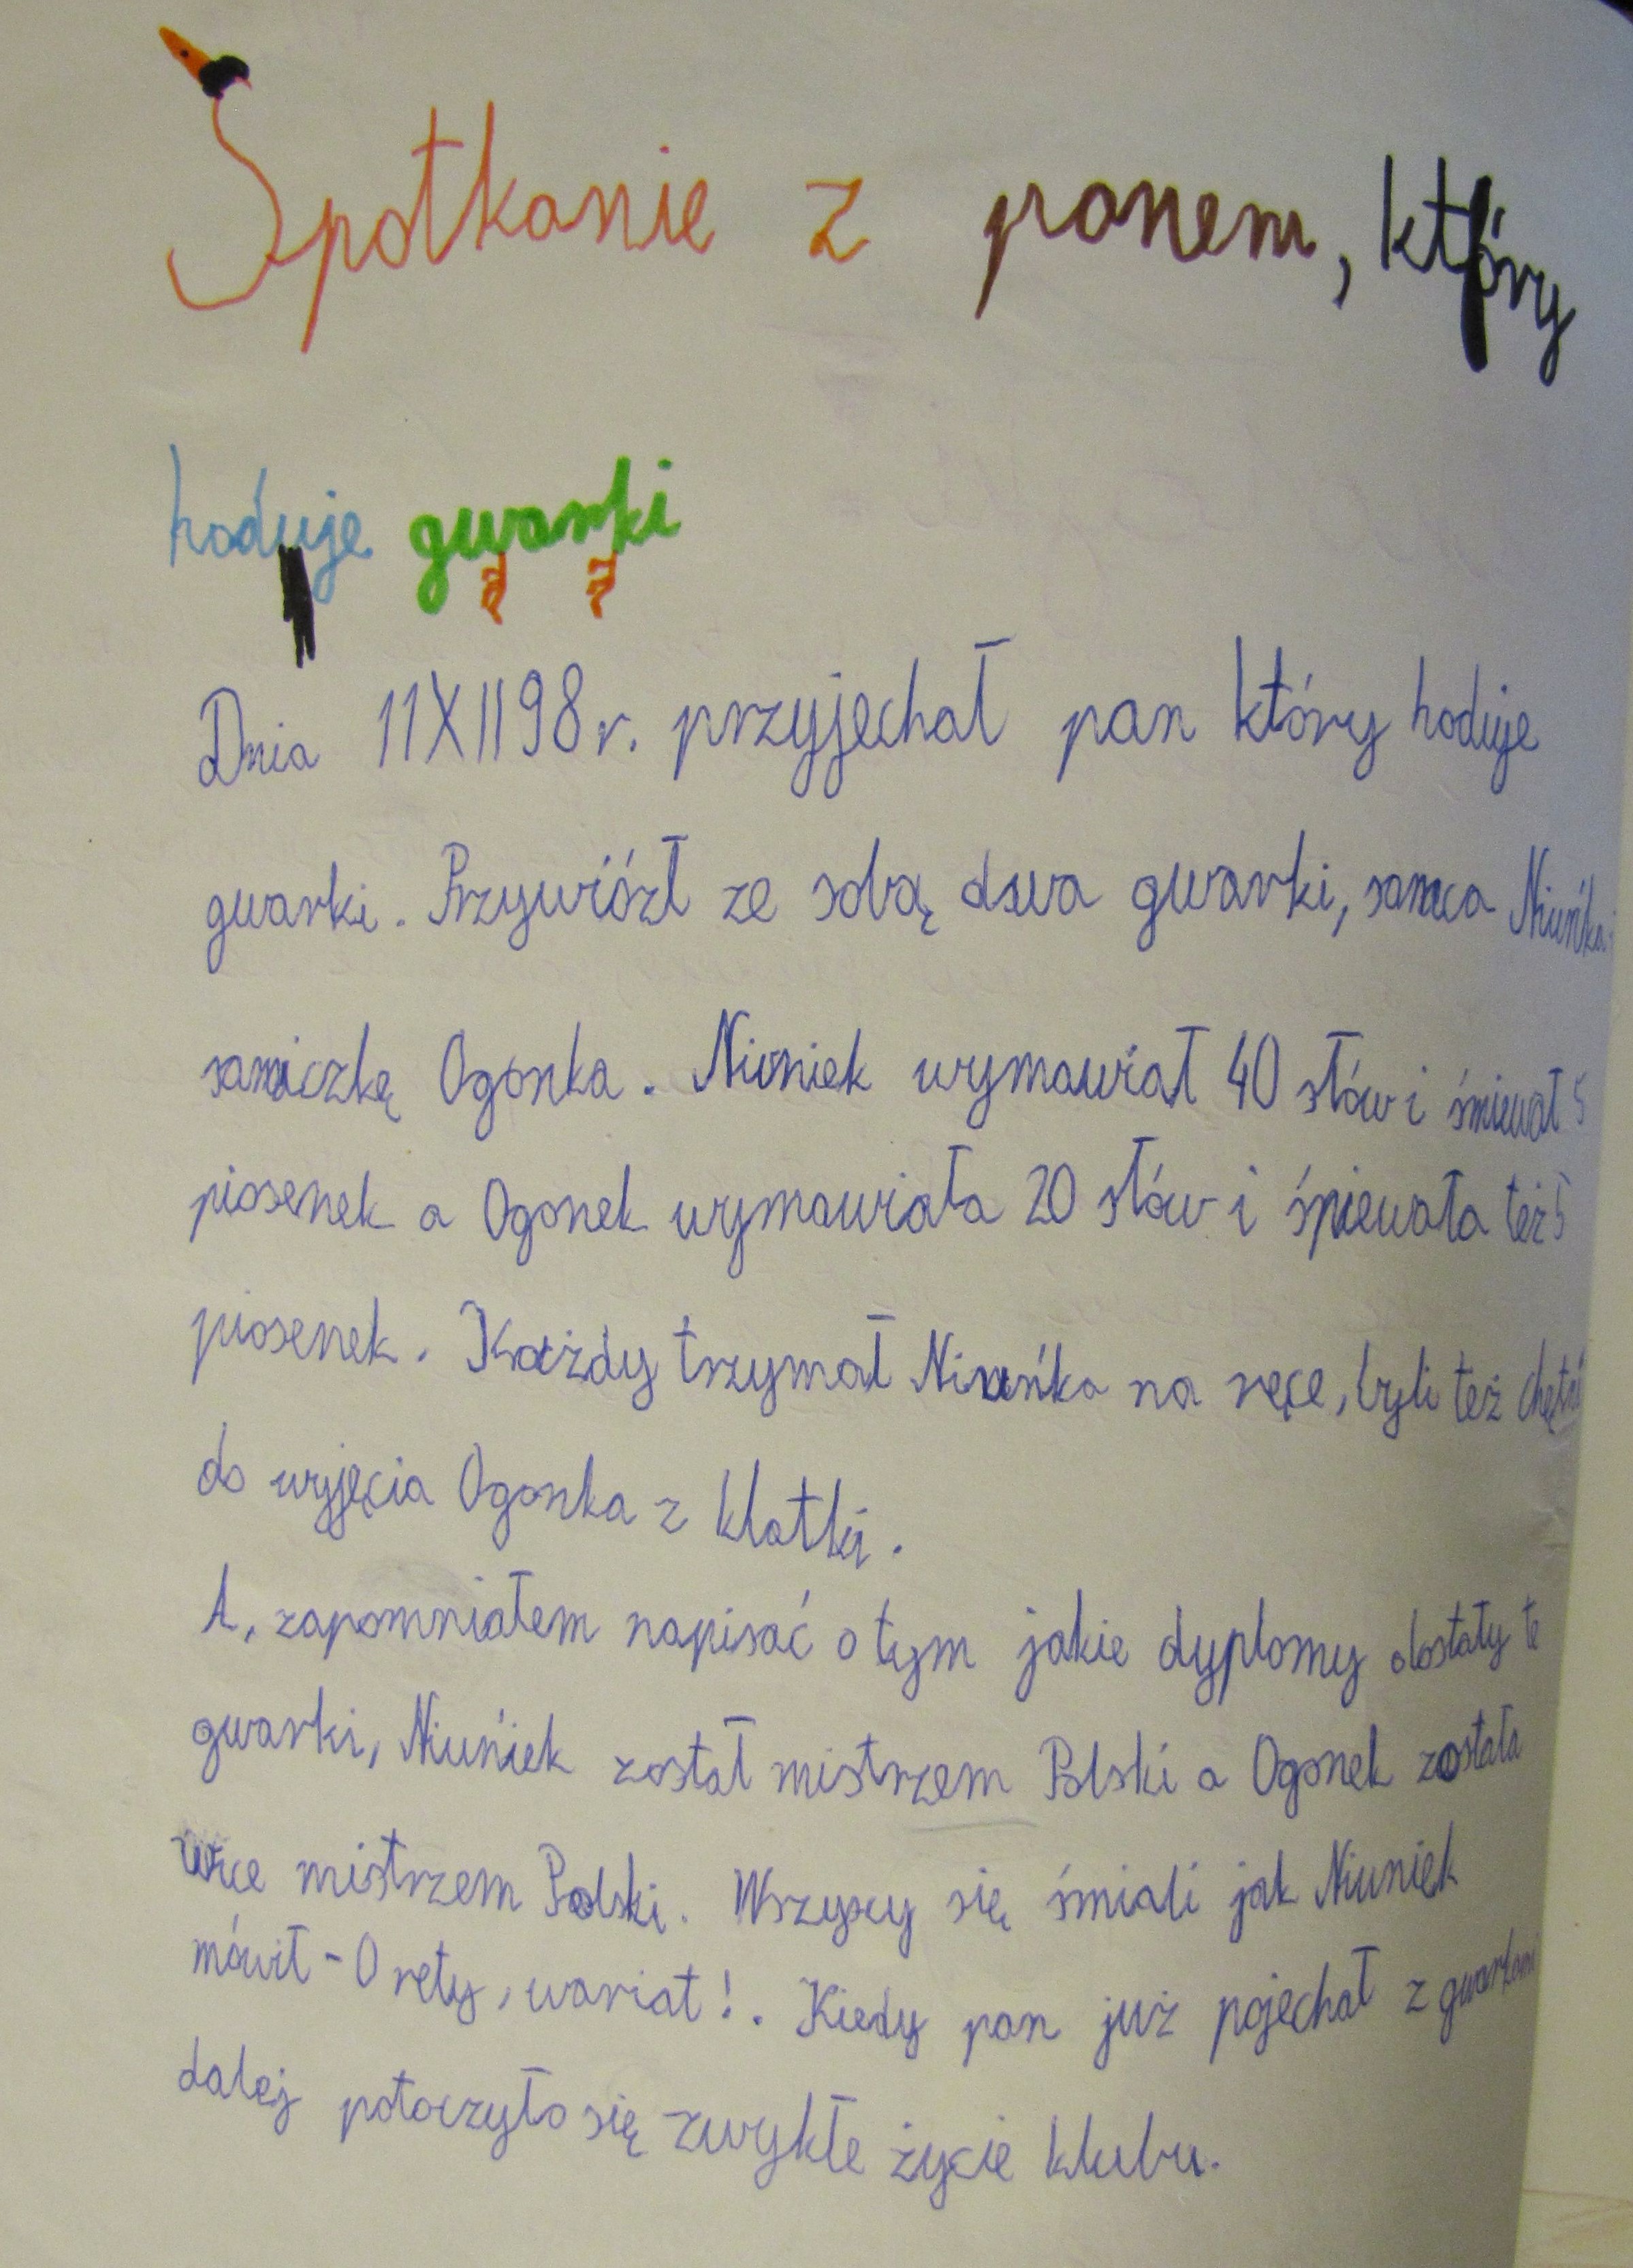 Spotkanie z panem, który
hoduje gwarki
Dnia 11XII98r. przyjechał pan który hoduje
gwarki. Przywiózł ze sobą dwa gwarki, samca Niuńka i
samiczkę Ogonka. Niuniek wymawiał 40 słów i śmiewał 5
piosenek a Ogonek wymawiała 20 słów i śpiewała też 5
piosenek. Każdy trzymał Niuńka na ręce, byli też chętni
do wyjęcia Ogonka z klatki.
A, zapomniałem napisać o tym jakie dyplomy dostały te
gwarki, Niuniek został mistrzem Polski a Ogonek została
wice mistrzem Polski. Wszyscy się śmiali jak Niuniek
mówił - O rety, wariat!. Kiedy pan już pojechał z gwarkami
dalej potoczyło się zwykłe życie klubu.